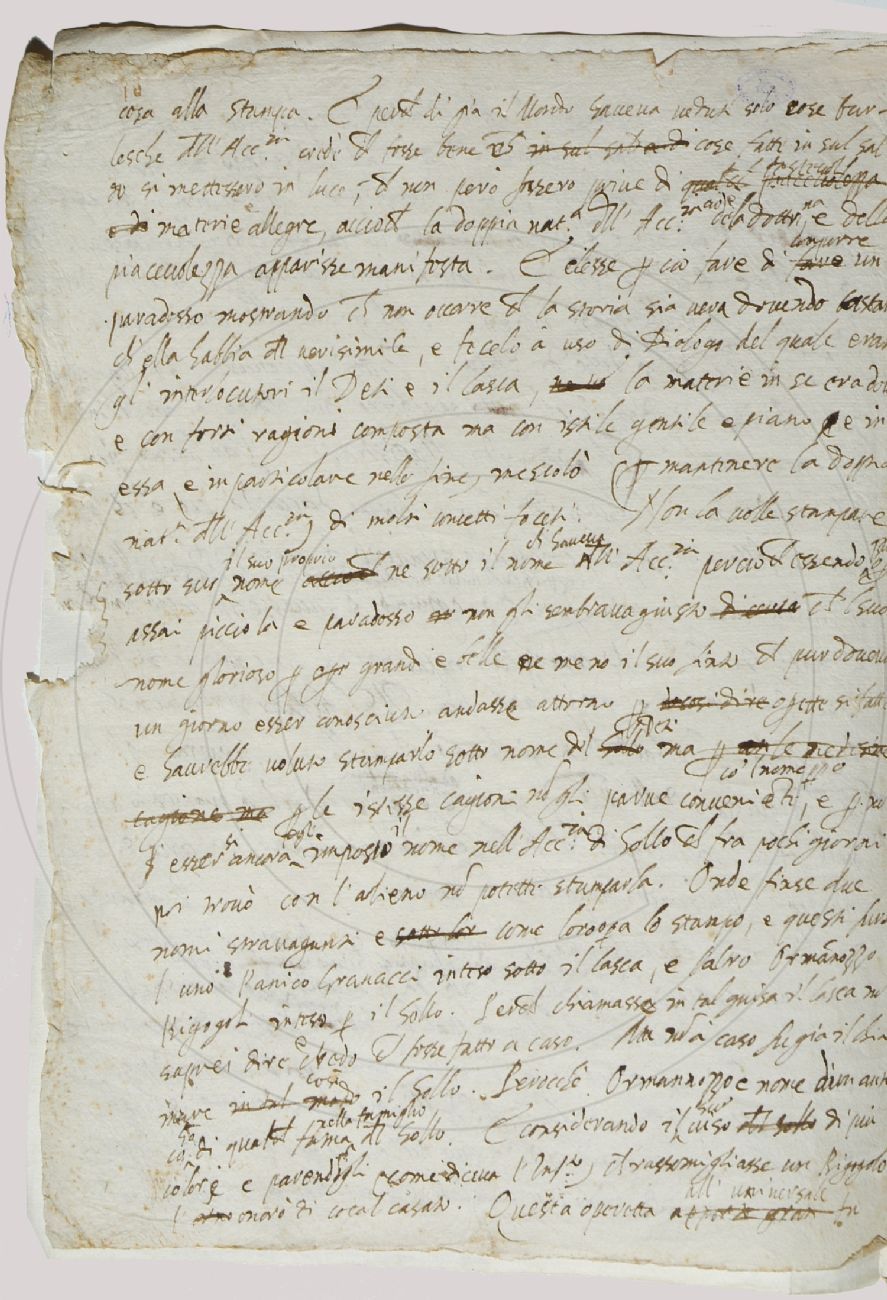 cosa alla stampa. E perche di già il Mondo haveva veduti solo cose bur-
lesche dell'Acc.ia credè che fosse bene che in sul sodo di cose fatte in sul sal
do si mettessero in luce; che non però fussero prive di qualche piacevolezza
e di materie allegre, accioche la doppia nat.a dell'Acc.ia cioè della dottr.na e della
piacevolezza apparisse manifesta. E elesse p ciò fare di fare comporre un
paradosso mostrando che non occorre che la storia sia vera dovendo bastar
ch'ella habbia del verisimile, e fecelo à uso di Dialogo del quale eran
gl'interlocutori il Deti e il Lasca, la materie in se era do
e con forti ragioni composta ma con istile gentile e piano, e in
essa, e in particolare nello fine, mescolò (p mantenere la doppia
nat.a dell'Acc.ia) di molti concetti faceti. Non la volle stampare
sotto suo il suo proprio nome ne sotto il nome ch'haveva dell'Acc.ia perciochè essendo
assai picciola e paradosso non gli sembrava giusto che l suo
nome glorioso p opre grandi e belle ne meno il suo finto che pur doveva
un giorno esser conosciuto andasse attorno p cosi dire opette si fatte
e haurebbe voluto stamparlo sotto nome del Sollo Deti ma p le medesime
cagione ma p le istesse cagioni nō gli parve conveniente, e p
esser si ancora egli imposto il nome nell'Acc.ia di Sollo che fra pochi giorni
poi trovò con l'alieno nō potette stamparla. Onde finse due
nomi stravaganti e sotto lor come loro oppa lo stampò, e questi fur
l'uno Panico Granacci inteso sotto il Lasca, e l'altro Ormannozzo
Rigogoli inteso p il Sollo. Perche chiamasse in tal guisa il Lasca nō
saprei dire e credo che fosse fatto a caso. Ma nō à caso fu già il chia
mare in tal modo così il Sollo. Perocchè Ormannozzo e nome d'un ant
co di qualche fama nella famiglia del Sollo. E considerando il suo viso del Sollo di più
colore e parendogli (come diceva l'Inf.to) che rassomigliasse un Rigogolo
l'onorò di cotal casato. Questa operetta all'universale apporto gran fu